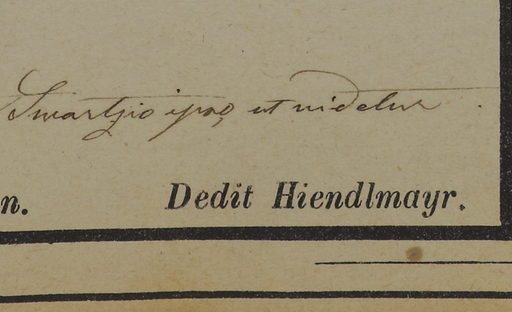 Swartzio ipso, ut videtur.
n.
Dedit Hiendlmayr.